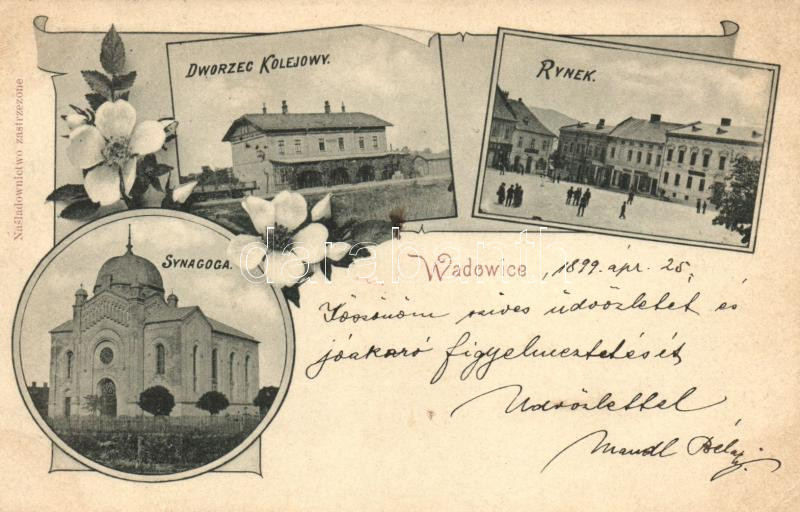 Naśladownictwo zastrzeżone
DWORZEC KOLEJOWY.
RYNEK.
SYNAGOGA.
darabanth
Wadowice, 1899. ápr. 25.
Köszönöm szives üdvözletet és
jóakaró figyelmeztetését
Üdvözlettel
Mandl Béla